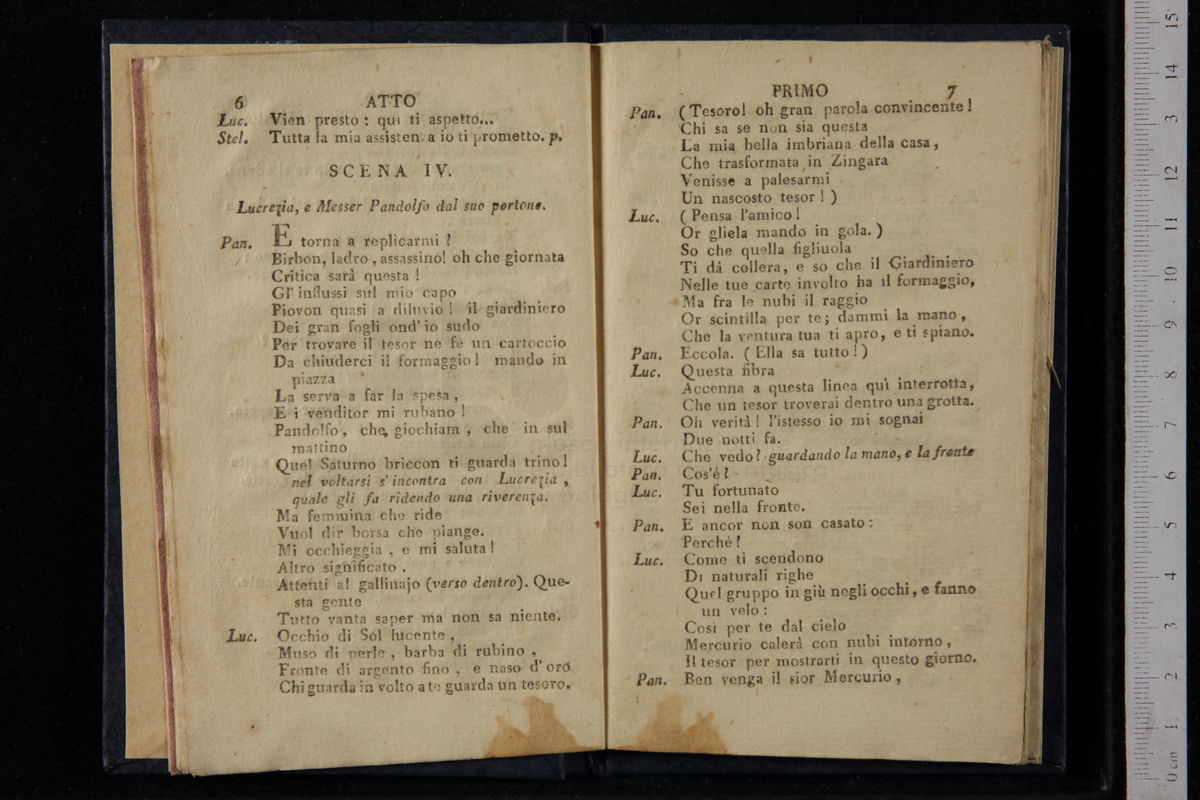 6 ATTO
Luc. Vien presto : qui ti aspetto...
Stel. Tutta la mia assisten a io ti prometto. p.
SCENA IV.
Lucrezia, e Messer Pandolfo dal suo portone.
Pan. E torna a replicarmi ?
Birbon, ladro , assassino! oh che giornata
Critica sarà questa !
Gl' influssi sul mio capo
Piovon quasi a diluvio ! il giardiniero
Dei gran fogli ond' io sudo
Per trovare il tesor ne fe un cartoccio
Da chiuderci il formaggio ! mando in
piazza
La serva a far la spesa ,
E i venditor mi rubano !
Pandolfo, che, giochiam , che in sul
mattino
Quel Saturno briccon ti guarda trino!
nel voltarsi s' incontra con Lucrezia ,
quale gli fa ridendo una riverenza.
Ma femmina che ride
Vuol dir borsa che piange.
Mi occhieggia , e mi saluta !
Altro significato .
Attenti al gallinajo (verso dentro). Que-
sta gente
Tutto vanta saper ma non sa niente.
Luc. Occhio di Sol lucente ,
Muso di perle , barba di rubino ,
Fronte di argento fino , e naso d' oro
Chi guarda in volto a te guarda un tesoro.
PRIMO 7
Pan. ( Tesoro! oh gran parola convincente !
Chi sa se non sia questa
La mia bella imbriana della casa ,
Che trasformata in Zingara
Venisse a palesarmi
Un nascosto tesor ! )
Luc. ( Pensa l'amico !
Or gliela mando in gola. )
So che quella figliuola
Ti dà collera, e so che il Giardiniero
Nelle tue carte involto ha il formaggio,
Ma fra le nubi il raggio
Or scintilla per te; dammi la mano ,
Che la ventura tua ti apro, e ti spiano.
Pan. Eccola. ( Ella sa tutto ! )
Luc. Questa fibra
Accenna a questa linea quì interrotta,
Che un tesor troverai dentro una grotta.
Pan. Oh verità ! l'istesso io mi sognai
Due notti fa.
Luc. Che vedo? guardando la mano, e la fronte
Pan. Cos'è ?
Luc. Tu fortunato
Sei nella fronte.
Pan. E ancor non son casato :
Perchè ?
Luc. Come ti scendono
Di naturali righe
Quel gruppo in giù negli occhi, e fanno
un velo :
Così per te dal cielo
Mercurio calerà con nubi intorno ,
Il tesor per mostrarti in questo giorno.
Pan. Ben venga il sior Mercurio ,
0 cm 1 2 3 4 5 6 7 8 9 10 11 12 13 14 15